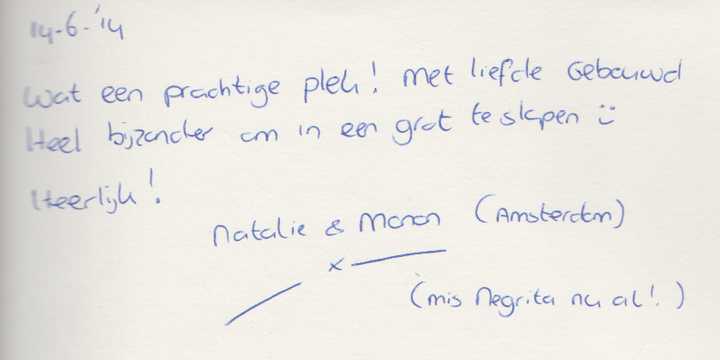 14-6-'14
Wat een prachtige plek! Met liefde Gebouwd
Heel bijzonder om in een grot te slapen :)
Heerlijk!
Natalie & Manon (Amsterdam)
x
(mis Negrita nu al!)